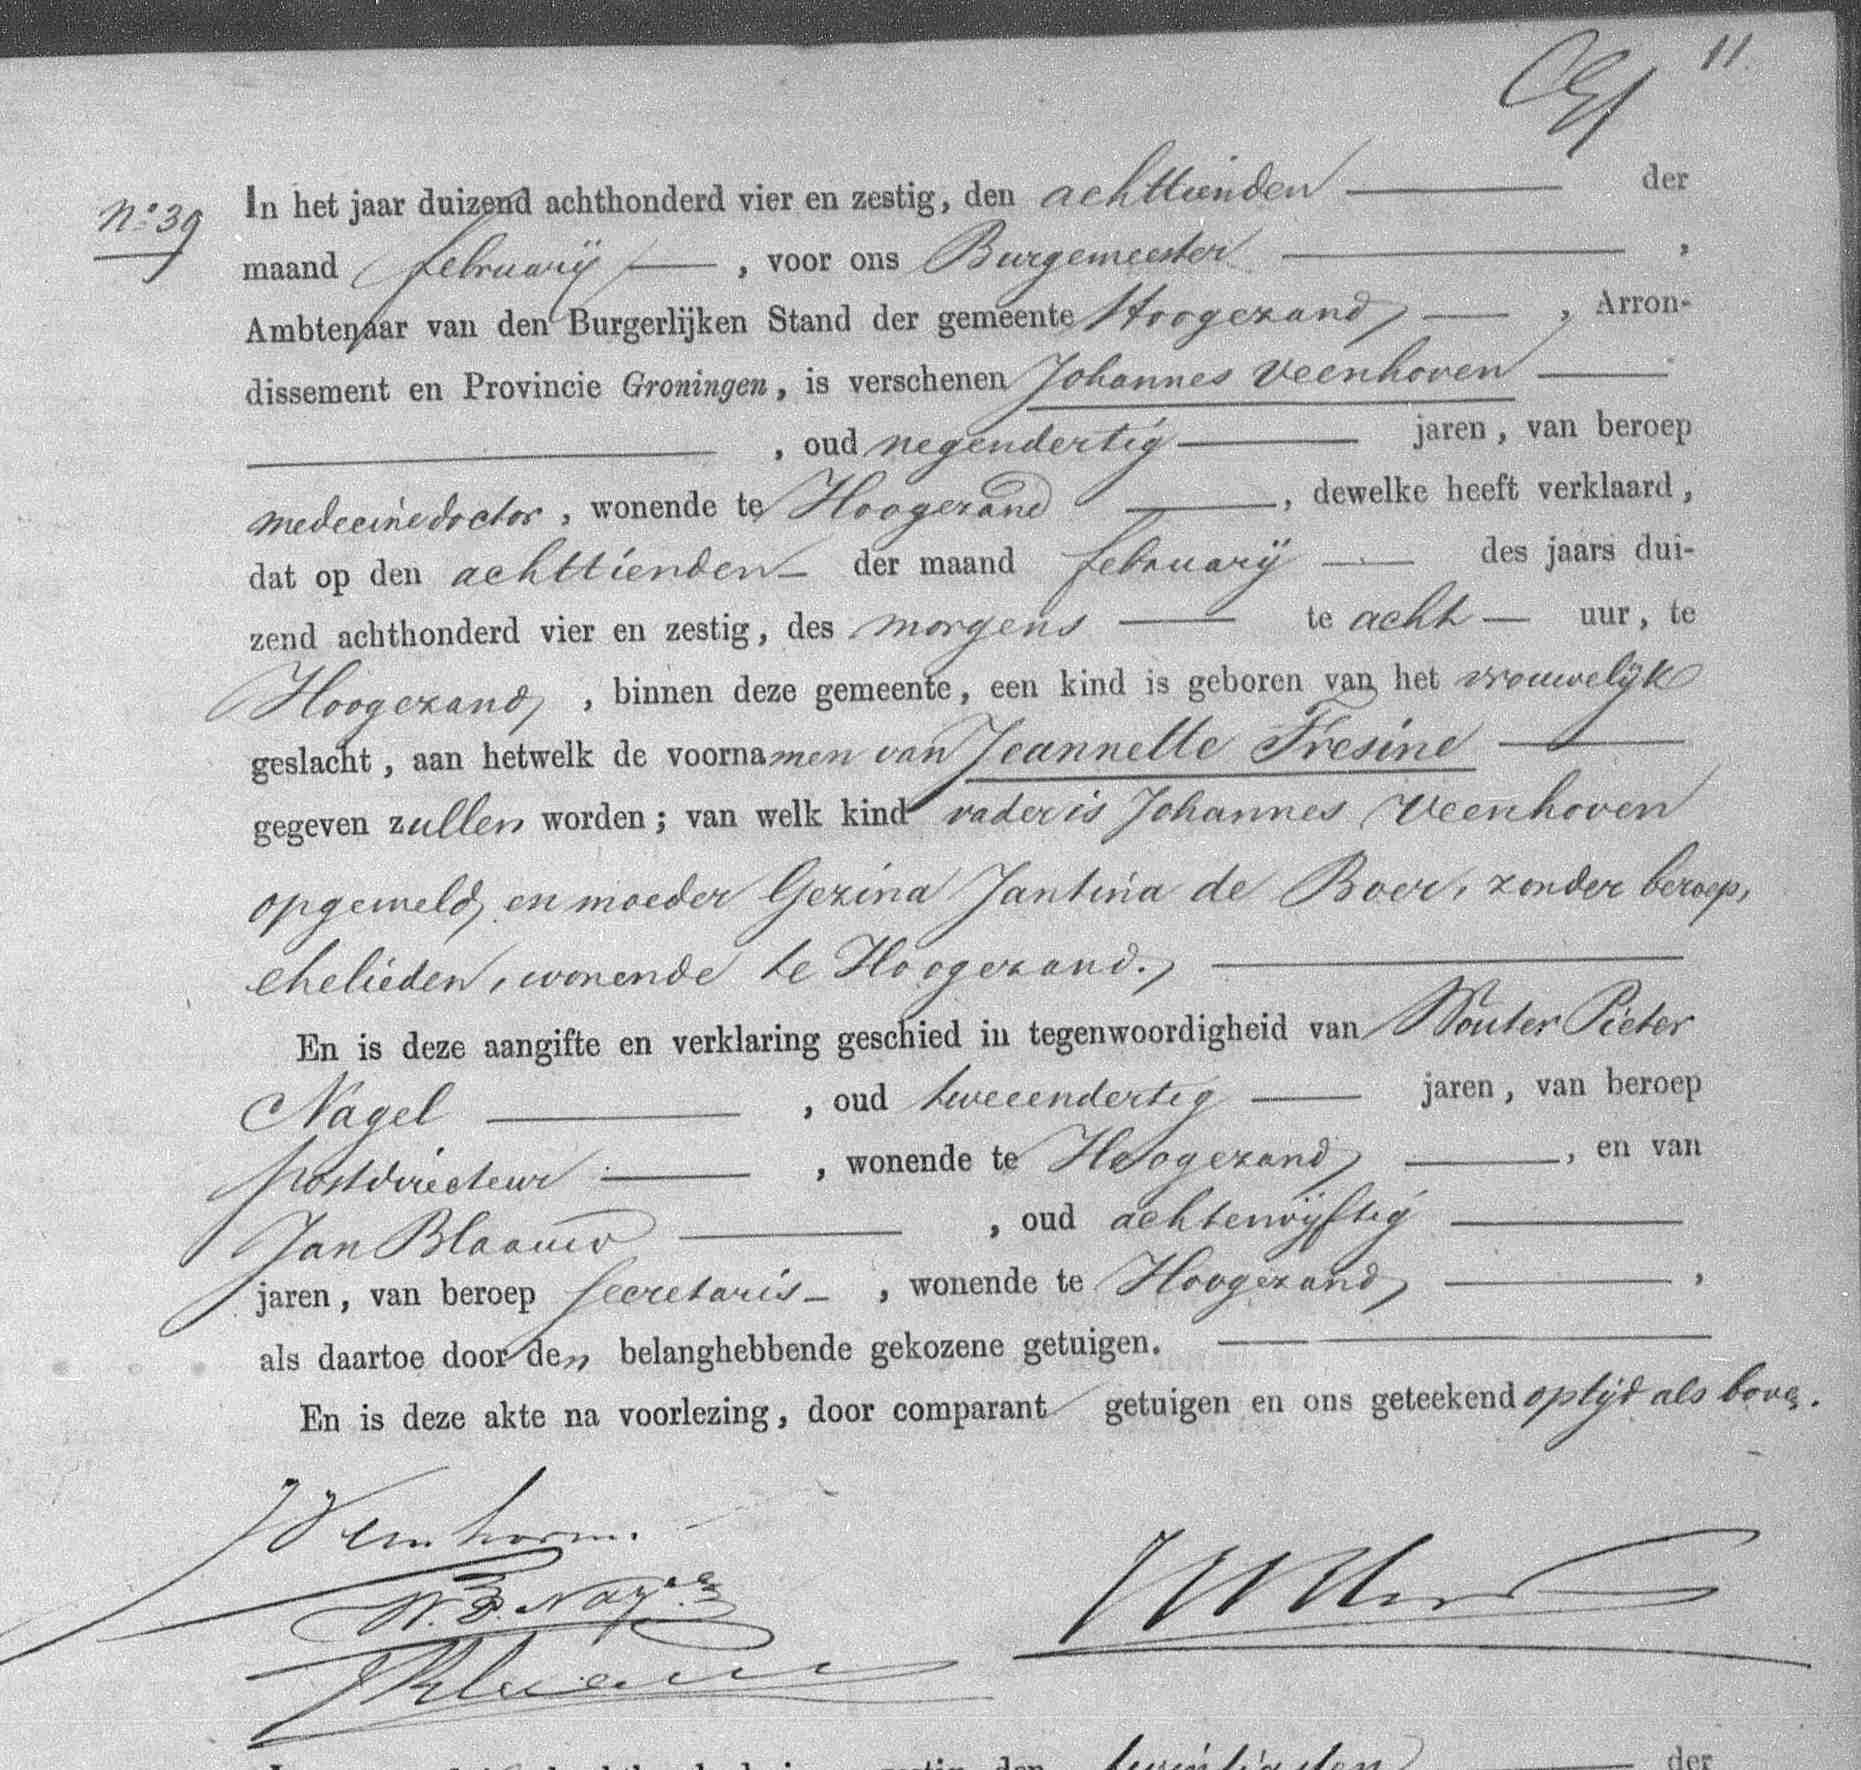 11
No. 39
In het jaar duizend achthonderd vier en zestig, den achttienden der
maand februarij, voor ons Burgemeester,
Ambtenaar van den Burgerlijken Stand der gemeente Hoogezand, Arron-
dissement en Provincie Groningen, is verschenen Johannes Veenhoven
, oud negendertig jaren, van beroep
medecinedoctor, wonende te Hoogezand, dewelke heeft verklaard,
dat op den achttienden der maand februarij des jaars dui-
zend achthonderd vier en zestig, des morgens te acht uur, te
Hoogezand, binnen deze gemeente, een kind is geboren van het vrouwelijk
geslacht, aan hetwelk de voornamen van Jeannette Fresine
gegeven zullen worden; van welk kind vader is Johannes Veenhoven
opgemeld, en moeder Gezina Jantina de Boer, zonder beroep,
ehelieden, wonende te Hoogezand.,
En is deze aangifte en verklaring geschied in tegenwoordigheid van Wouter Pieter
Nagel, oud tweeendertig jaren, van beroep
postdirecteur, wonende te Hoogezand, en van
Jan Blaauw, oud achtenvijftig
jaren, van beroep secretaris, wonende te Hoogezand,
als daartoe door den belanghebbende gekozene getuigen.
En is deze akte na voorlezing, door comparant getuigen en ons geteekend op tijd als boven.
J Veenhoven.
W. P. Nagel
J Blaauw
twintigsten der